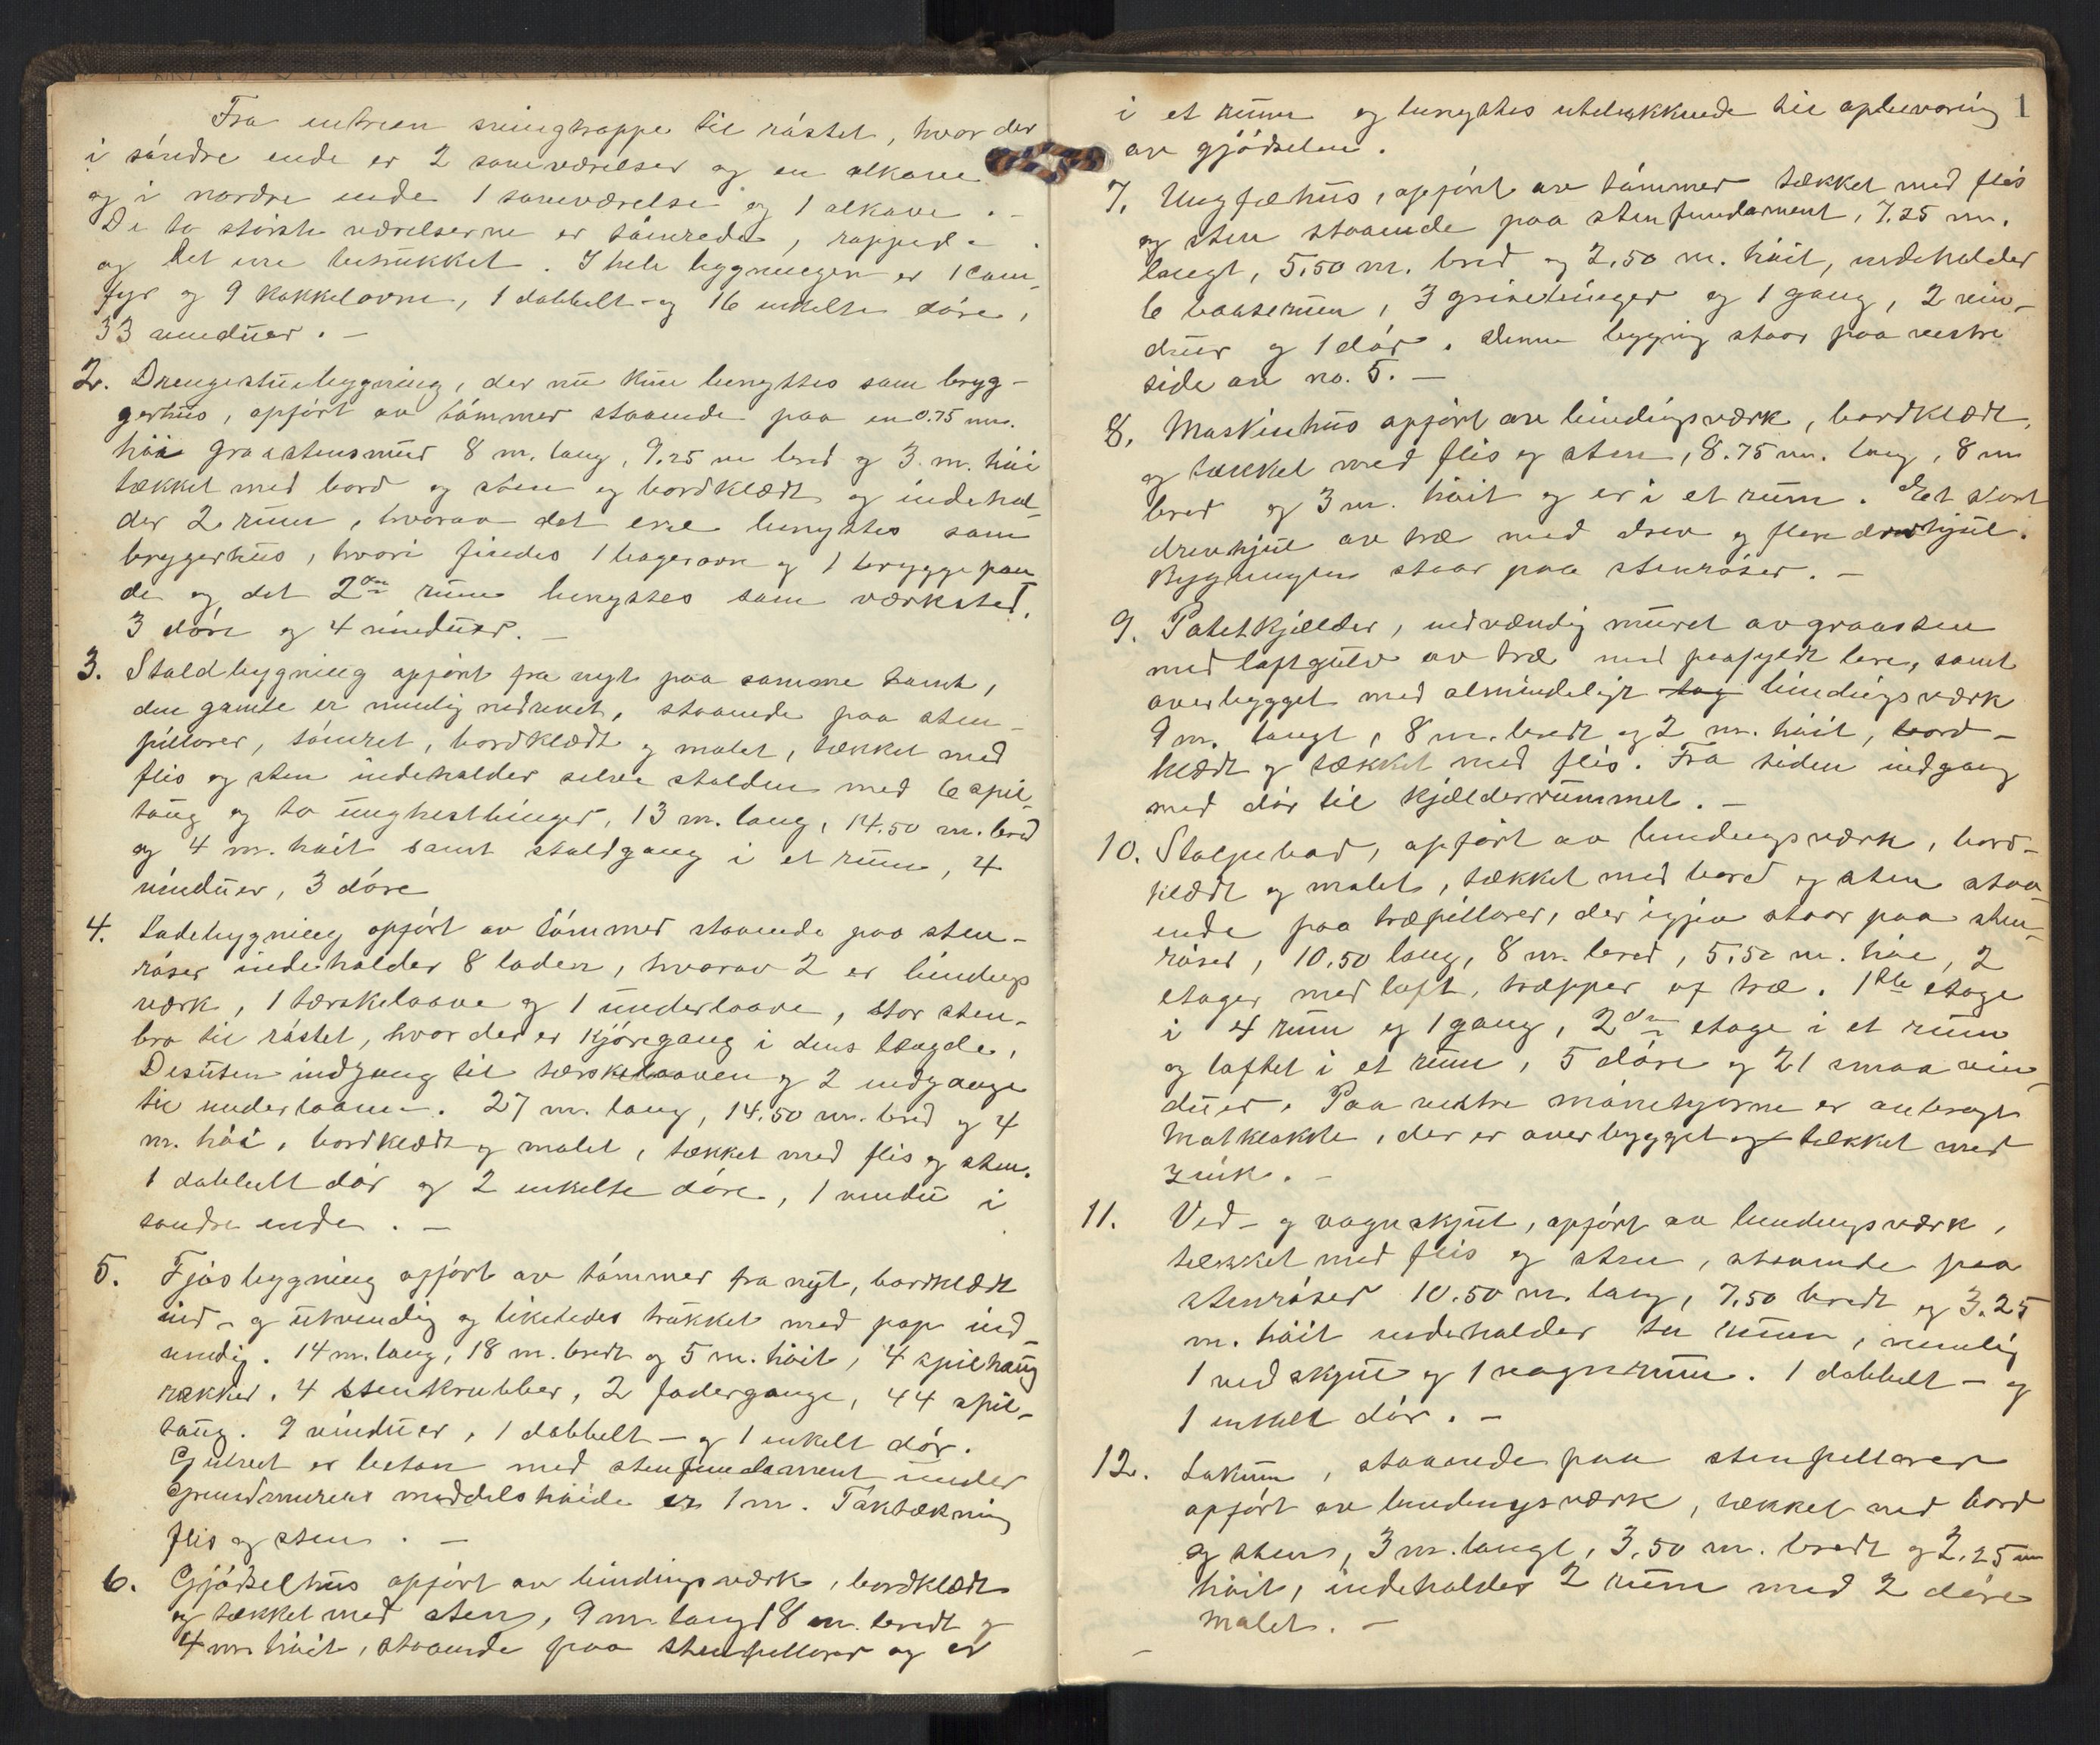 Fra entreen svingtrappe til råstet, hvor der
i söndre ende er 2 soveværelser og en alkove
og i nordre ende 1 soveværelse og 1 alkove. -
De to största værelserne er tömrede, rappede
og det ene betrukket. I hele bygningen er 1 com-
fyr og 9 kakkelovne, 1 dobbelt- og 16 enkelte döre,
33 vinduer. -
2. Drengestuebygning, der nu kun benyttes som bryg-
gerhus, opfört av tömmer staaende paa en 0.75 m.
höi graastensmur 8 m. lang, 9.25 m bred og 3 m. höi
tækket med bord og sten og bordklædt og indehol-
der 2 rum, hvorav det ene benyttes som
bryggerhus, hvori findes 1 bagerovn og 1 bryggepan-
de og det 2det rum benyttes som værksted.
3 döre og 4 vinduer. -
3. Staldbygning opfört fra nyt paa samme tomt,
den gamle er nemlig nedrevet, staaende paa sten-
pillarer, tömret, bordklædt og malet, tækket med
flis og sten indeholder selve stalden med 6 spil-
taug og to unghestbinger, 13 m. lang, 14.50 m. bred
og 4 m. höit samt staldgang i et rum, 4
vinduer, 3 döre
4. Ladebygning opfört av tömmer staaende paa sten-
röser indeholder 8 lader, hvorav 2 er bindings
værk, 1 tærskelaave og 1 underlaave, stor sten-
bro til råstet, hvor der er kjöregang i dens længde.
Desuten indgang til tærskelaaven og 2 indgange
til underlaaven. 27 m. lang, 14.50 m. bred og 4
m. höi, bordklædt og malet, tækket med flis og sten.
1 dobbelt dör og 2 enkelte döre, 1 vindu i
söndre ende. -
5. Fjösbygning opfört av tömmer fra nyt, bordklædt
ind- og utvendig og likeledes trukket med pap ind-
vendig. 14 m. lang, 18 m. bredt og 5 m. höit, 4 spiltaug
rækker, 4 stenkrubber, 2 fodergange, 44 spil-
taug. 9 vinduer, 1 dobbelt- og 1 enkelt dör.
Gulvet er beton med stenfundament under
Grundmurens middelshöide er 1 m. Taktækning
flis og sten. -
6. Gjödselhus opfört av bindingsværk, bordklædt
og tækket med sten, 9 m. langt 8 m. bredt og
4 m. höit, staaende paa stenpillarer og er
1
i et rum og benyttes utelukkende til opbevaring
av gjödselen.
7. Ungfæhus, opfört av tömmer tækket med flis
og sten staaende paa stenfundament, 7.25 m.
langt, 5.50 m. bred og 2.50 m. höit, indeholder
6 baaserum, 3 grisebinger og 1 gang, 2 vin-
duer og 1 dör. Denne bygning staar paa vestre
side av no. 5. -
8. Maskinhus opfört av bindingsværk, bordklædt,
og tækket med flis og sten, 8.75 m. lang, 8 m
bred og 3 m. höit og er i et rum. Et stort
drevhjul av træ med drev og flere drevhjul.
Bygningen staar paa stenröser. -
9. Potetkjælder, indvendig muret av graasten
med loftgulv av træ med paafyldt lere, samt
overbygget med almindeligt tag bindingsværk
9 m. langt, 8 m. bredt og 2 m. höit, bord-
klædt og tækket med flis. Fra siden indgang
med dör til kjælderrummet. -
10. Stolpebod, opfört av bindingsværk, bord-
klædt og malet, tækket med bord og sten staa-
ende paa træpillarer, der igjen staar paa sten-
röser, 10.50 lang, 8 m. bred, 5.50 m. höi, 2
etager med loft, træpper af træ. 1ste etage
i 4 rum og 1 gang, 2den etage i et rum
og loftet i et rum, 5 döre og 21 smaa vin-
duer. Paa vestre mönehjörne er anbragt
Matklokke, der er overbygget og tækket med
zink. -
11. Ved- og vognskjul, opfört av bindingsværk,
tækket med flis og sten, staaende paa
stenröser 10.50 m. lang, 7.50 bredt og 3.25
m. höit indeholder to rum, nemlig
1 vedskjul og 1 vognrum. 1 dobbelt- og
1 enkelt dör. -
12. Lokum, staaende paa stenpillarer
opfört av bindingsværk, tækket med bord
og sten, 3 m. langt, 3.50 m. bredt og 2.25 m
höit, indeholder 2 rum med 2 döre
malet. -